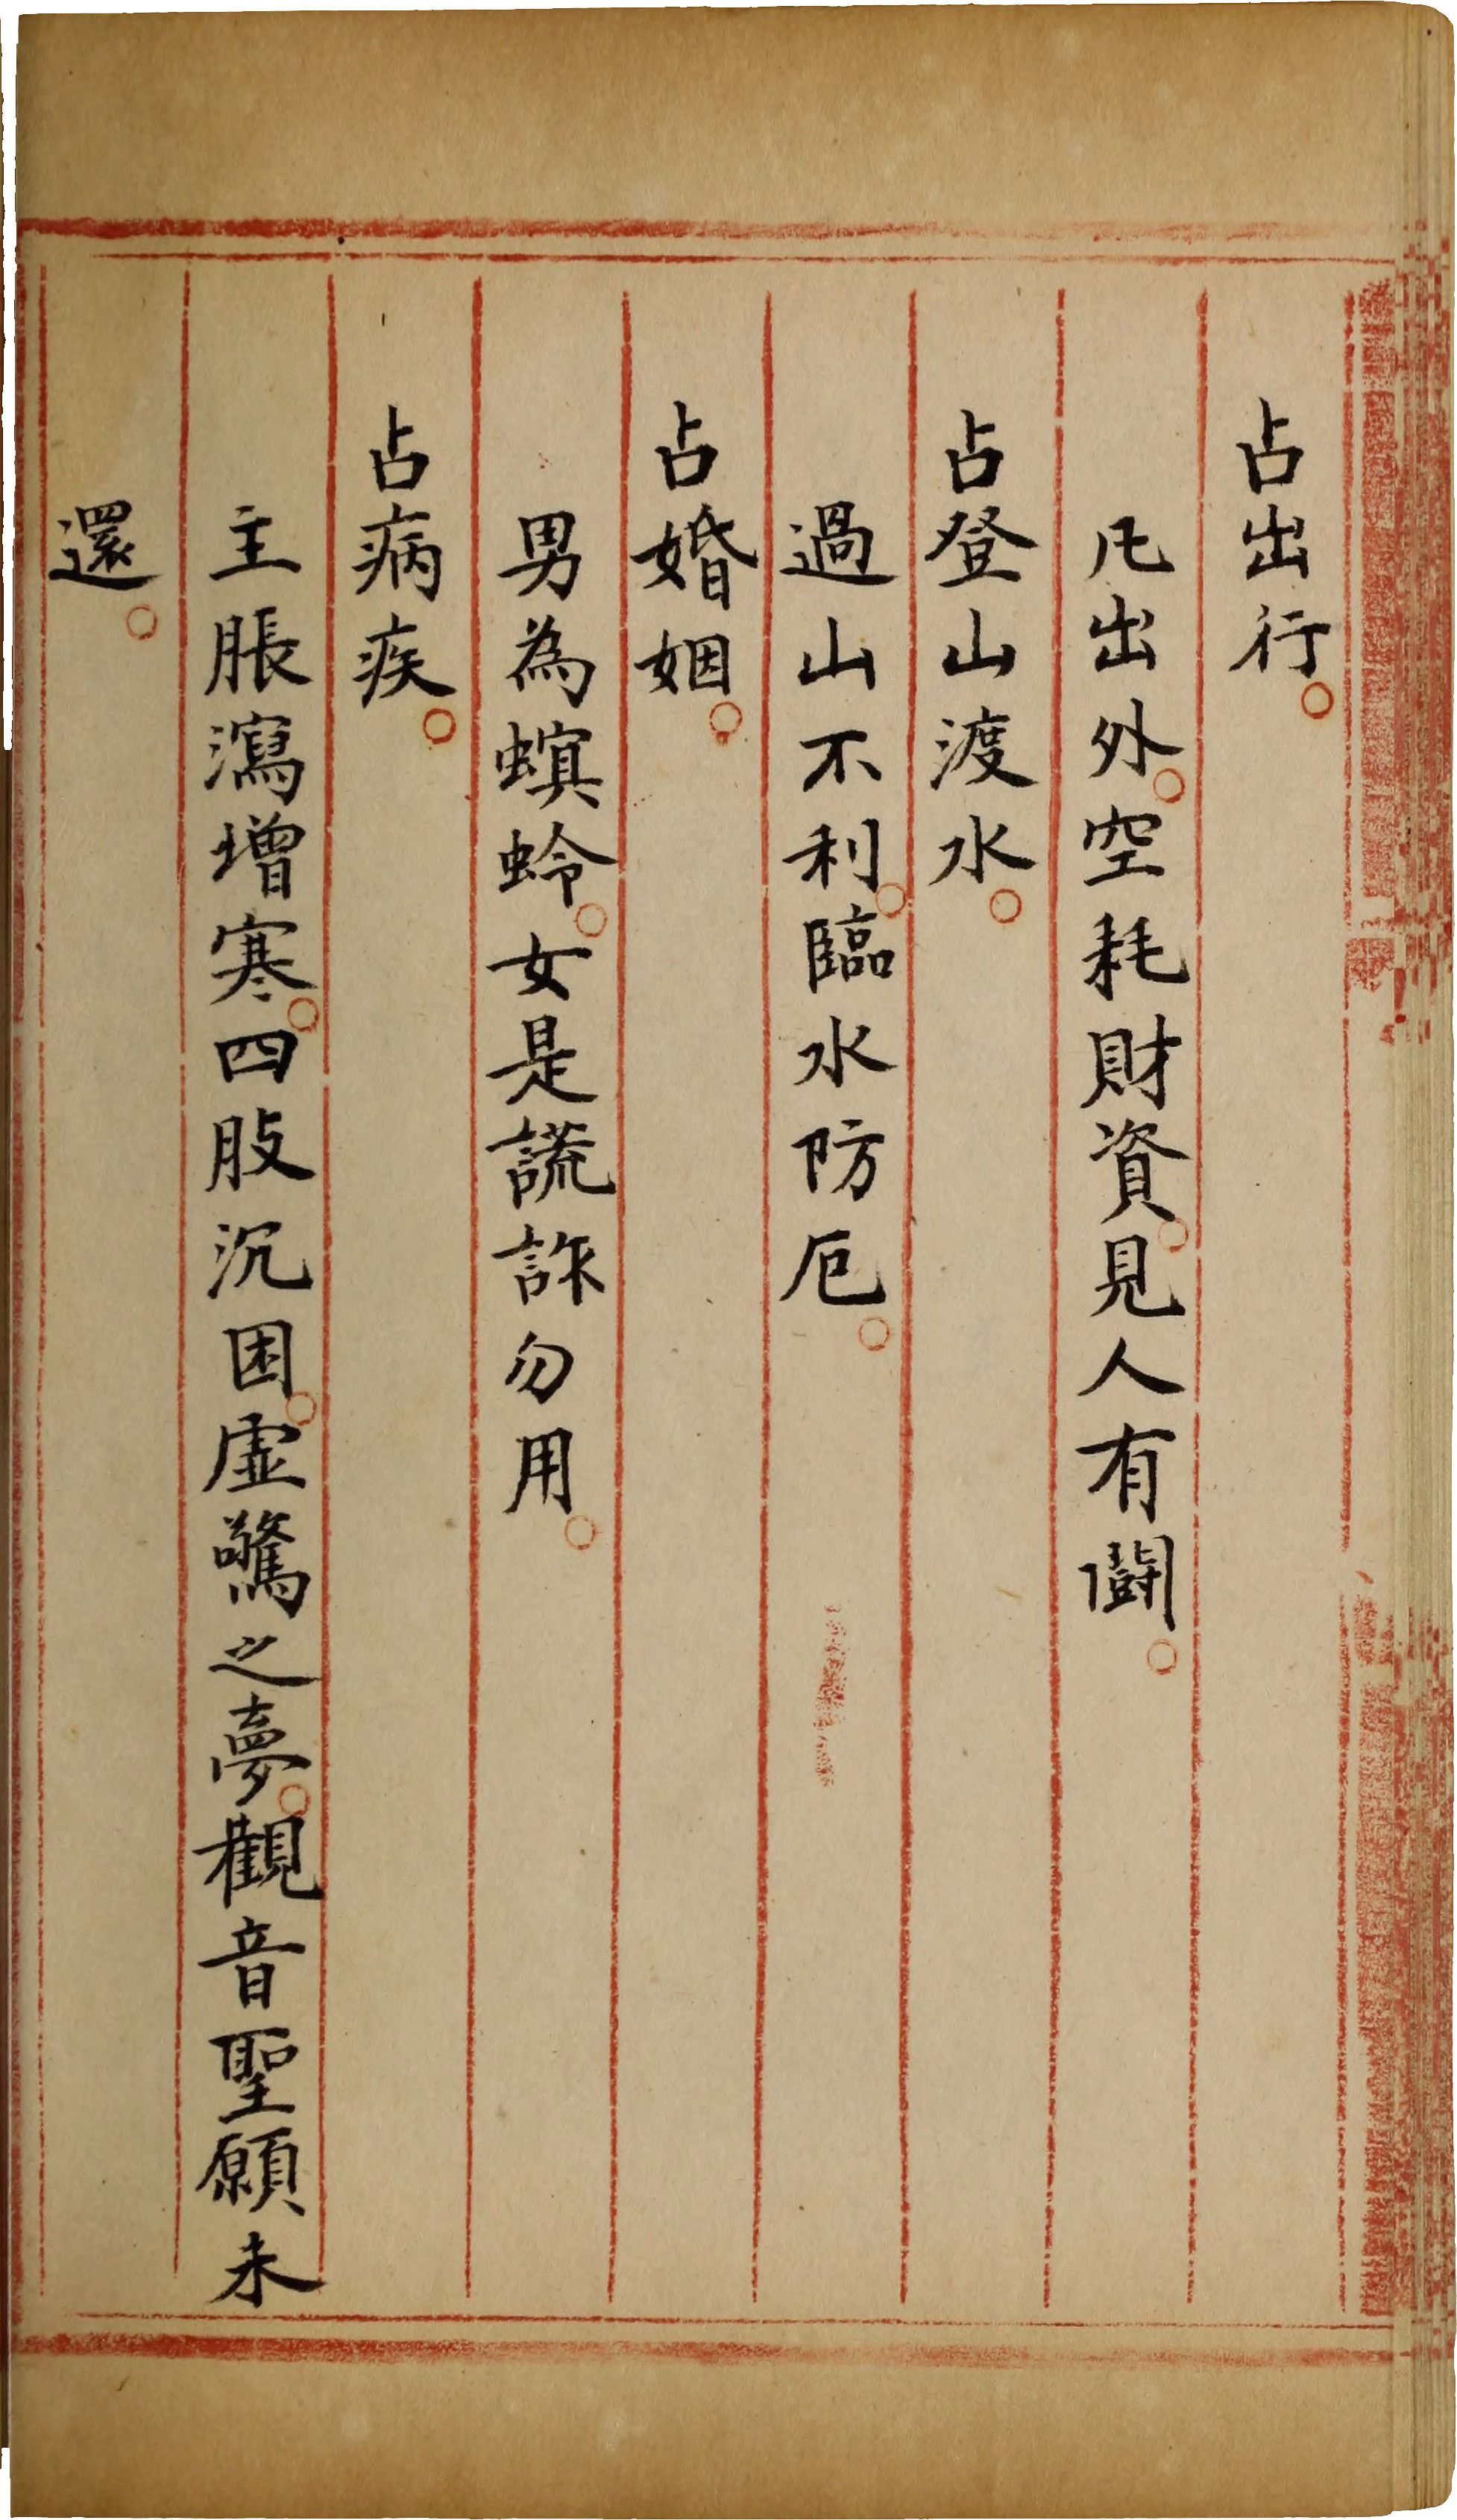 占出行。
凡出外。空耗財資。見人有鬪。
占登山渡水。
過山不利。臨水防厄。
占婚姻。
男為螟蛉。女是謊詐勿用。
占病疾。
主脹瀉增寒。四肢沉困。虛驚之夢。觀音聖願未
還。